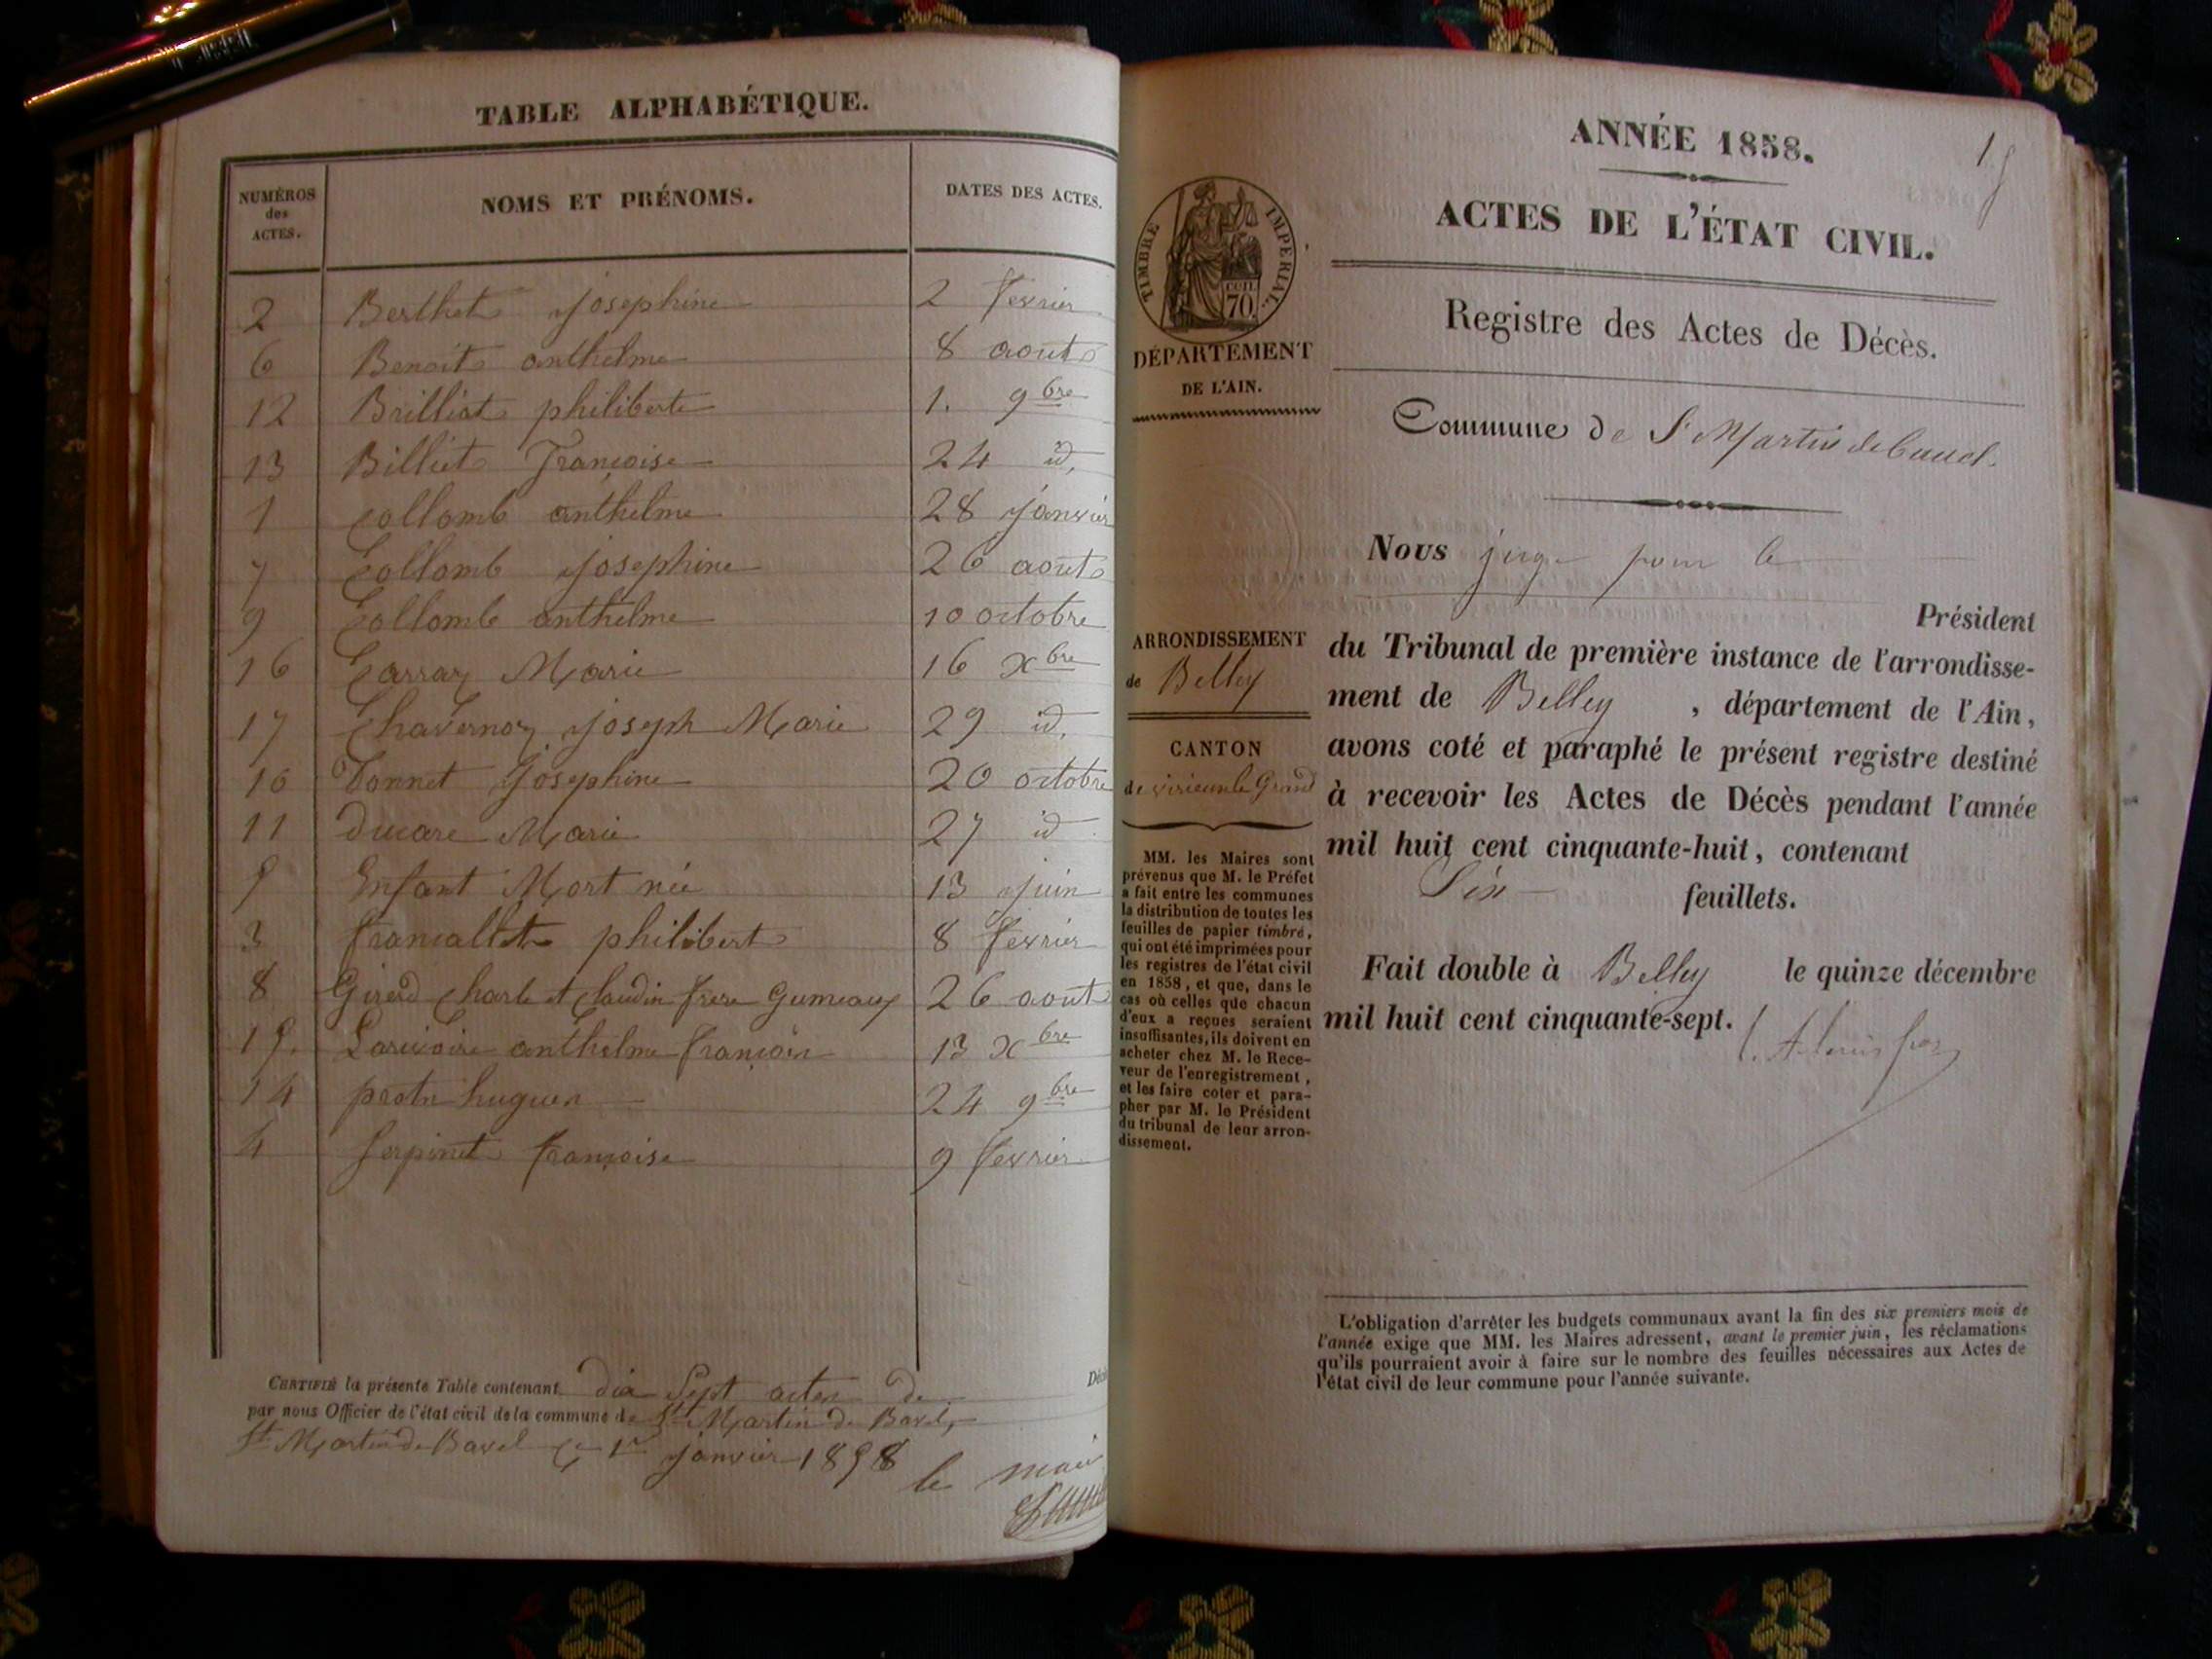 TABLE ALPHABÉTIQUE.
NUMÉROS
des
ACTES.
NOMS ET PRÉNOMS.
DATES DES ACTES.
2 Berthet josephine 2 fevrier
6 Benoit anthelme 8 aout
12 Brilliat philiberte 1. 9bre
13 Billiet Françoise 24 id,
1 Collomb anthelme 28 janvier
7 Collomb josephine 26 aout
9 Collomb anthelme 10 octobre
16 Carraz Marie 16 Xbre
17 Chavernoz joseph Marie 29 id,
10 Donnet josephine 20 octobre
11 Ducare Marie 27 id
5 Enfant Mort née 13 juin
3 philibert 8 fevrier
8 Girerd Charle et Claudin frere Gumeaux 26 aout
15. Larivoire anthelme François 13 Xbre
14 huguen 24 9bre
4 Serpinet françoise 9 fevrier
CERTIFIÉ la présente Table contenant dix Sept actes de
par nous Officier de l'état civil de la commune de St Martin de Bavel,
St Martin de Bavel ce 1er janvier 1858
le maire
1
ANNÉE 1858.
ACTES DE L'ÉTAT CIVIL.
Registre des Actes de Décès.
TIMBRE IMPERIAL.
70.
DÉPARTEMENT
DE L'AIN.
Commune de St Martin de Bavel.
Nous juge pour le
Président
ARRONDISSEMENT
de Belley
CANTON
de virieu le Grand
MM. les Maires sont
prévenus que M. le Préfet
a fait entre les communes
la distribution de toutes les
feuilles de papier timbré,
qui ont été imprimées pour
les registres de l'état civil
en 1858, et que, dans le
cas où celles que chacun
d'eux a reçues seraient
insuffisantes, ils doivent en
acheter chez M. le Rece-
veur de l'enregistrement,
et les faire coter et para-
pher par M. le Président
du tribunal de leur arron-
dissement.
du Tribunal de première instance de l'arrondisse-
ment de Belley , département de l'Ain,
avons coté et paraphé le présent registre destiné
à recevoir les Actes de Décès pendant l'année
mil huit cent cinquante-huit, contenant
Six feuillets.
Fait double à Belley le quinze décembre
mil huit cent cinquante-sept.
L'obligation d'arrêter les budgets communaux avant la fin des six premiers mois de
l'année exige que MM. les Maires adressent, avant le premier juin, les réclamations
qu'ils pourraient avoir à faire sur le nombre des feuilles nécessaires aux Actes de
l'état civil de leur commune pour l'année suivante.